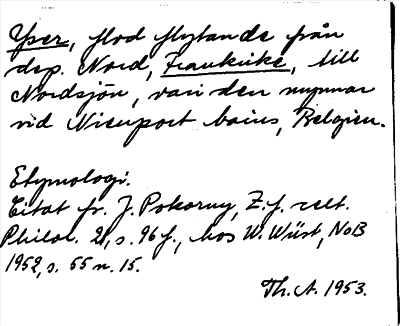 Yser, flod flytande från
dep. Nord, Frankrike, till
Nordsjön, vari den mynnar
vid Nieuport bains, Belgien.
Etymologi.
Citat fr. J. Pokorny, Z. f. celt.
Philol. 21, s. 96 f., hos W. Wüst, NoB
1952, s. 55 n. 15.
Th. A. 1953.